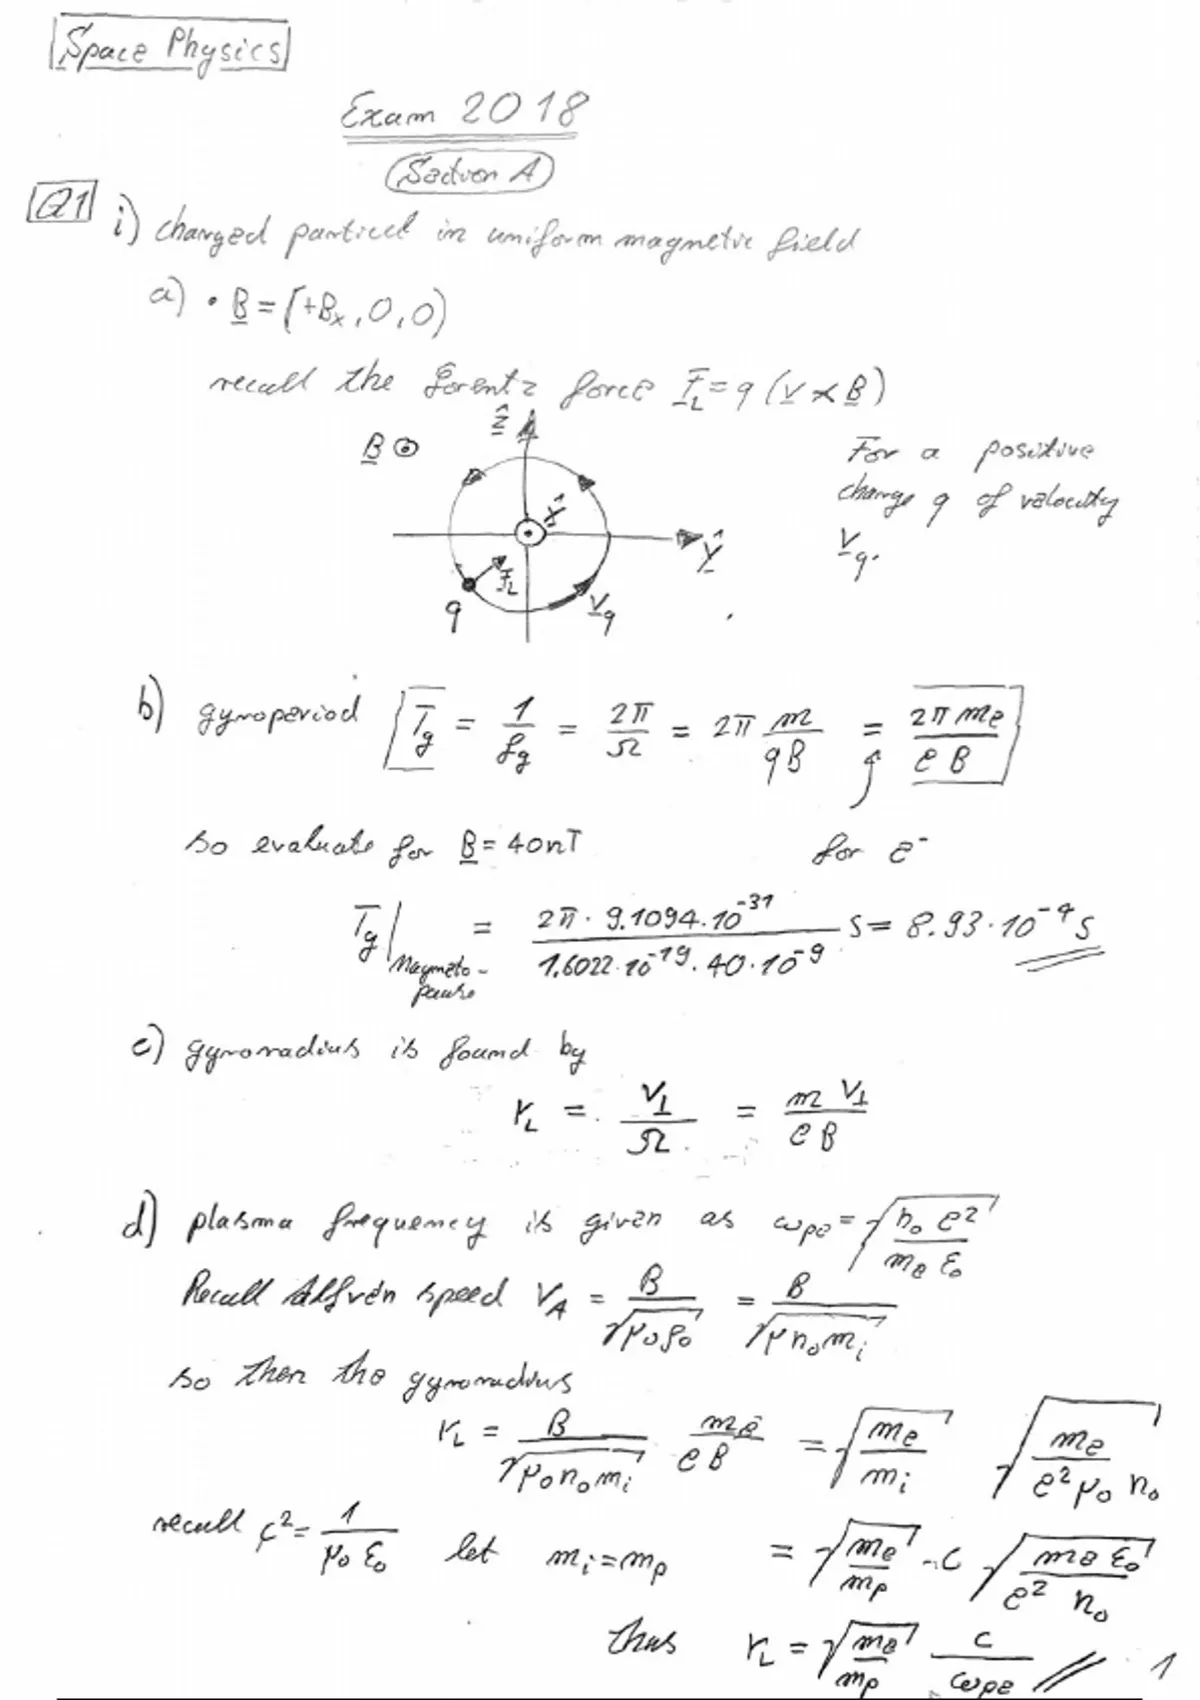 Space Physics
Exam 2018
Section A
Q1 i) charged particel in uniform magnetic field
a) • B = (+Bx, 0, 0)
recall the Lorentz force F_L = q (v × B)
B ⊙
ẑ
x̂
ŷ
F_L
q
v_q
For a positive
charge q of velocity
v_q.
b) gyroperiod T_g = 1/f_g = 2π/Ω = 2π m/qB = 2π me/eB
so evaluate for B = 40nT for e⁻
T_g | Magnetopause = 2π · 9.1094·10⁻³¹ / 1.6022·10⁻¹⁹·40·10⁻⁹ s = 8.93·10⁻⁴ s
c) gyroradius is found by
r_L = v⊥/Ω = m v⊥/eB
d) plasma frequency is given as ωpe = √(n₀ e²/me ε₀)
Recall Alfvén speed V_A = B/√(μ₀ρ₀) = B/√(μ n₀ mi)
so then the gyroradius
r_L = B/√(μ₀ n₀ mi) me/eB = √(me/mi) √(me/e² μ₀ n₀)
recall c² = 1/μ₀ ε₀ let mi = mp = √(me/mp) · c √(me ε₀/e² n₀)
thus r_L = √(me/mp) c/ωpe // 1